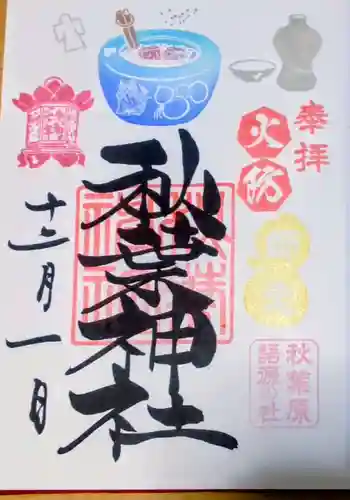 奉拝
火防
秋葉神社
十二月一日
秋葉原
語源の社